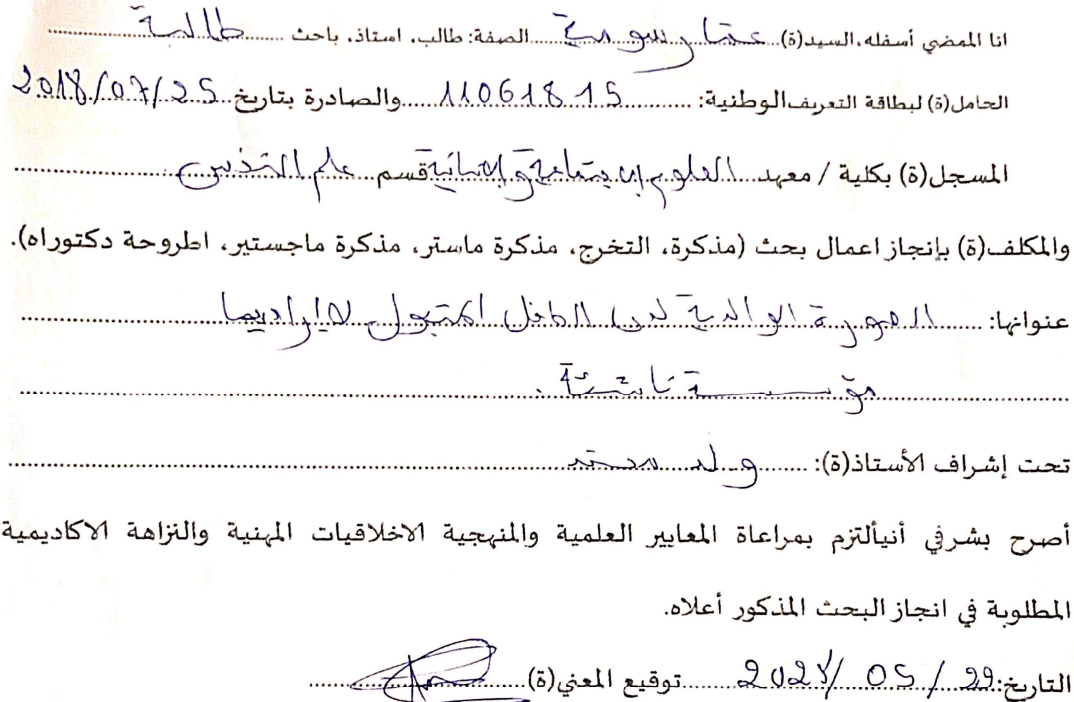 انا الممضي أسفله، السيد(ة) عمار سومية الصفة: طالب، استاذ، باحث طالبة
الحامل(ة) لبطاقة التعريف الوطنية: 11061815 والصادرة بتاريخ 2018/07/25
المسجل(ة) بكلية / معهد العلوم الاجتماعية والإنسانية قسم علم النفس
والمكلف(ة) بإنجاز اعمال بحث (مذكرة، التخرج، مذكرة ماستر، مذكرة ماجستير، اطروحة دكتوراه).
عنوانها: الصورة الوالدية لدى الطفل
مؤسسة ناشئة.
تحت إشراف الأستاذ(ة): ولد محند
أصرح بشرفي أنيألتزم بمراعاة المعايير العلمية والمنهجية الاخلاقيات المهنية والنزاهة الاكاديمية
المطلوبة في انجاز البحث المذكور أعلاه.
التاريخ: 29 / 05 / توقيع المعني(ة)